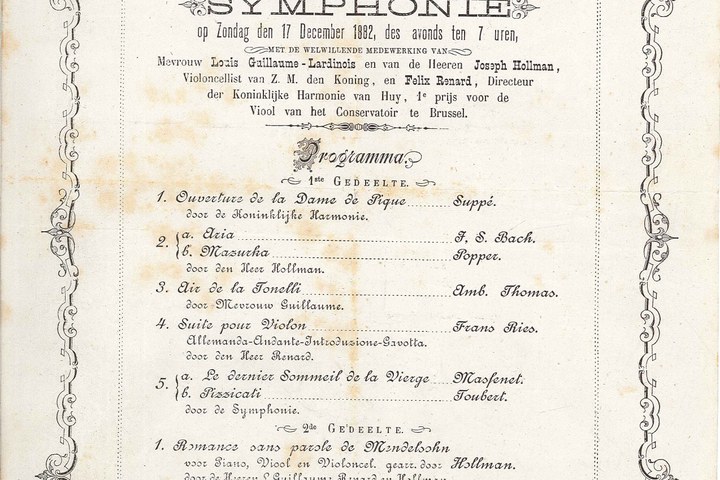 SYMPHONIE
op Zondag den 17 December 1882, des avonds ten 7 uren,
MET DE WELWILLENDE MEDEWERKING VAN
Mevrouw Louis Guillaume-Lardinois en van de Heeren Joseph Hollman,
Violoncellist van Z. M. den Koning, en Felix Renard, Directeur
der Koninklijke Harmonie van Huy, 1e prijs voor de
Viool van het Conservatoir te Brussel.
Programma.
1ste GEDEELTE.
1. Ouverture de la Dame de Pique ........ Suppé.
door de Koninklijke Harmonie.
2. a. Aria ........ J. S. Bach.
b. Mazurka ........ Popper.
door den Heer Hollman.
3. Air de la Tonelli ........ Amb. Thomas.
door Mevrouw Guillaume.
4. Suite pour Violon ........ Frans Ries.
Allemanda-Andante-Introduzione-Gavotta.
door den Heer Renard.
5. a. Le dernier Sommeil de la Vierge .... Massenet.
b. Pizzicati ........ Toubert.
door de Symphonie.
2de GEDEELTE.
1. Romance sans parole de Mendelsohn
voor Piano, Viool en Violoncel. gearr. door Hollman.
door de Heeren L. Guillaume, Renard en Hollman.